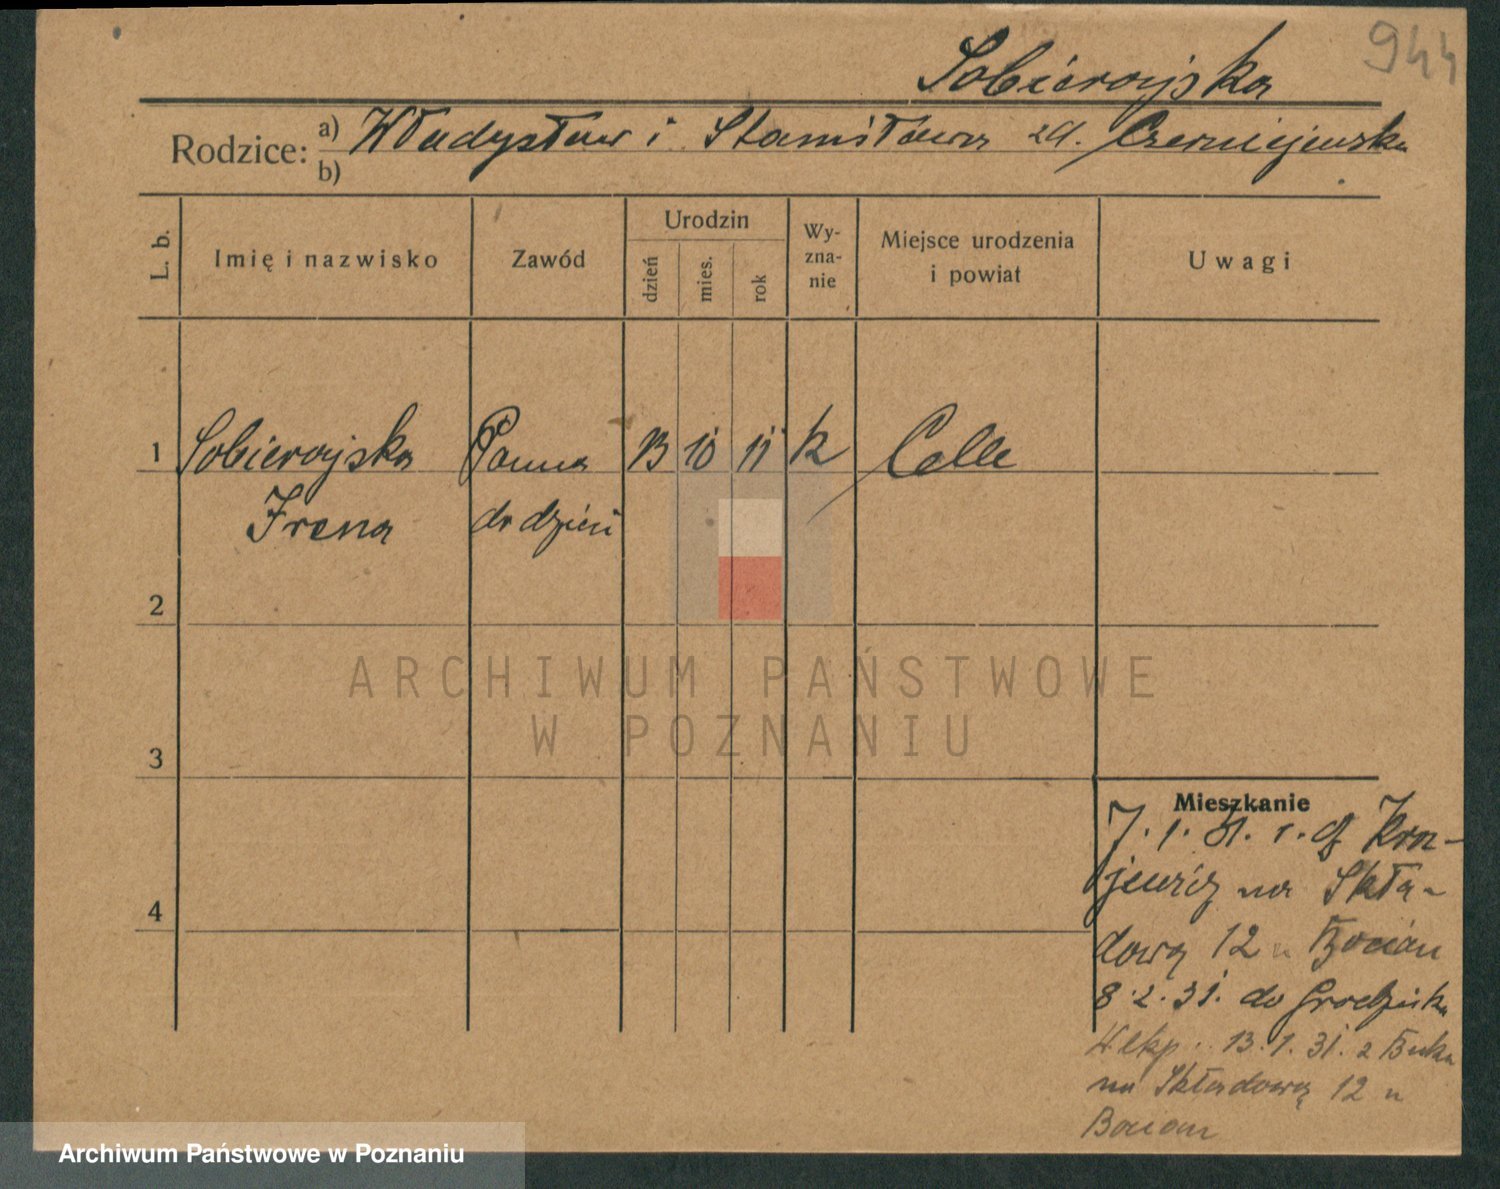 944
Sobierajska
Rodzice: a) Władysław i Stanisława zd. Czerniejewska
b)
L. b.
Imię i nazwisko
Zawód
Urodzin
dzień
mies.
rok
Wy-
zna-
nie
Miejsce urodzenia
i powiat
Uwagi
1 Sobierajska Panna 13 10 11 k Celle
Irena do dzieci
2
3
4
Mieszkanie
7. 1. 31. r. of Kra-
jewicz na Skła-
dową 12 u Bocian
8.2.31. do Grodziska
Wlkp. 13.1.31. z Buku
na Składową 12 u
Bocian
ARCHIWUM PAŃSTWOWE
W POZNANIU
Archiwum Państwowe w Poznaniu